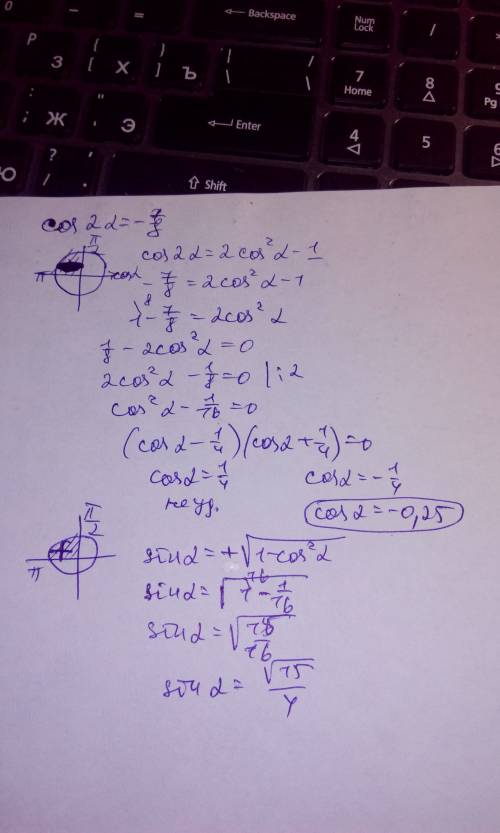 0 - = Backspace Num Lock /
Р З { [ Х } ] Ъ | \ / \ 7 Home 8 9 Pg
: ; Ж " ' Э Enter 4 5 6
Ю ? / . Shift
cos 2α = -7/8
π/2
π
cosα
cos2α = 2cos²α - 1
-7/8 = 2cos²α - 1
8
1 - 7/8 = 2cos²α
1/8 - 2cos²α = 0
2cos²α - 1/8 = 0 | : 2
cos²α - 1/16 = 0
(cosα - 1/4)(cosα + 1/4) = 0
cosα = 1/4 cosα = -1/4
не уд. cosα = -0,25
π/2
π
+
sinα = +√(1 - cos²α)
16
sinα = √(1 - 1/16)
sinα = √(15/16)
sinα = √15/4